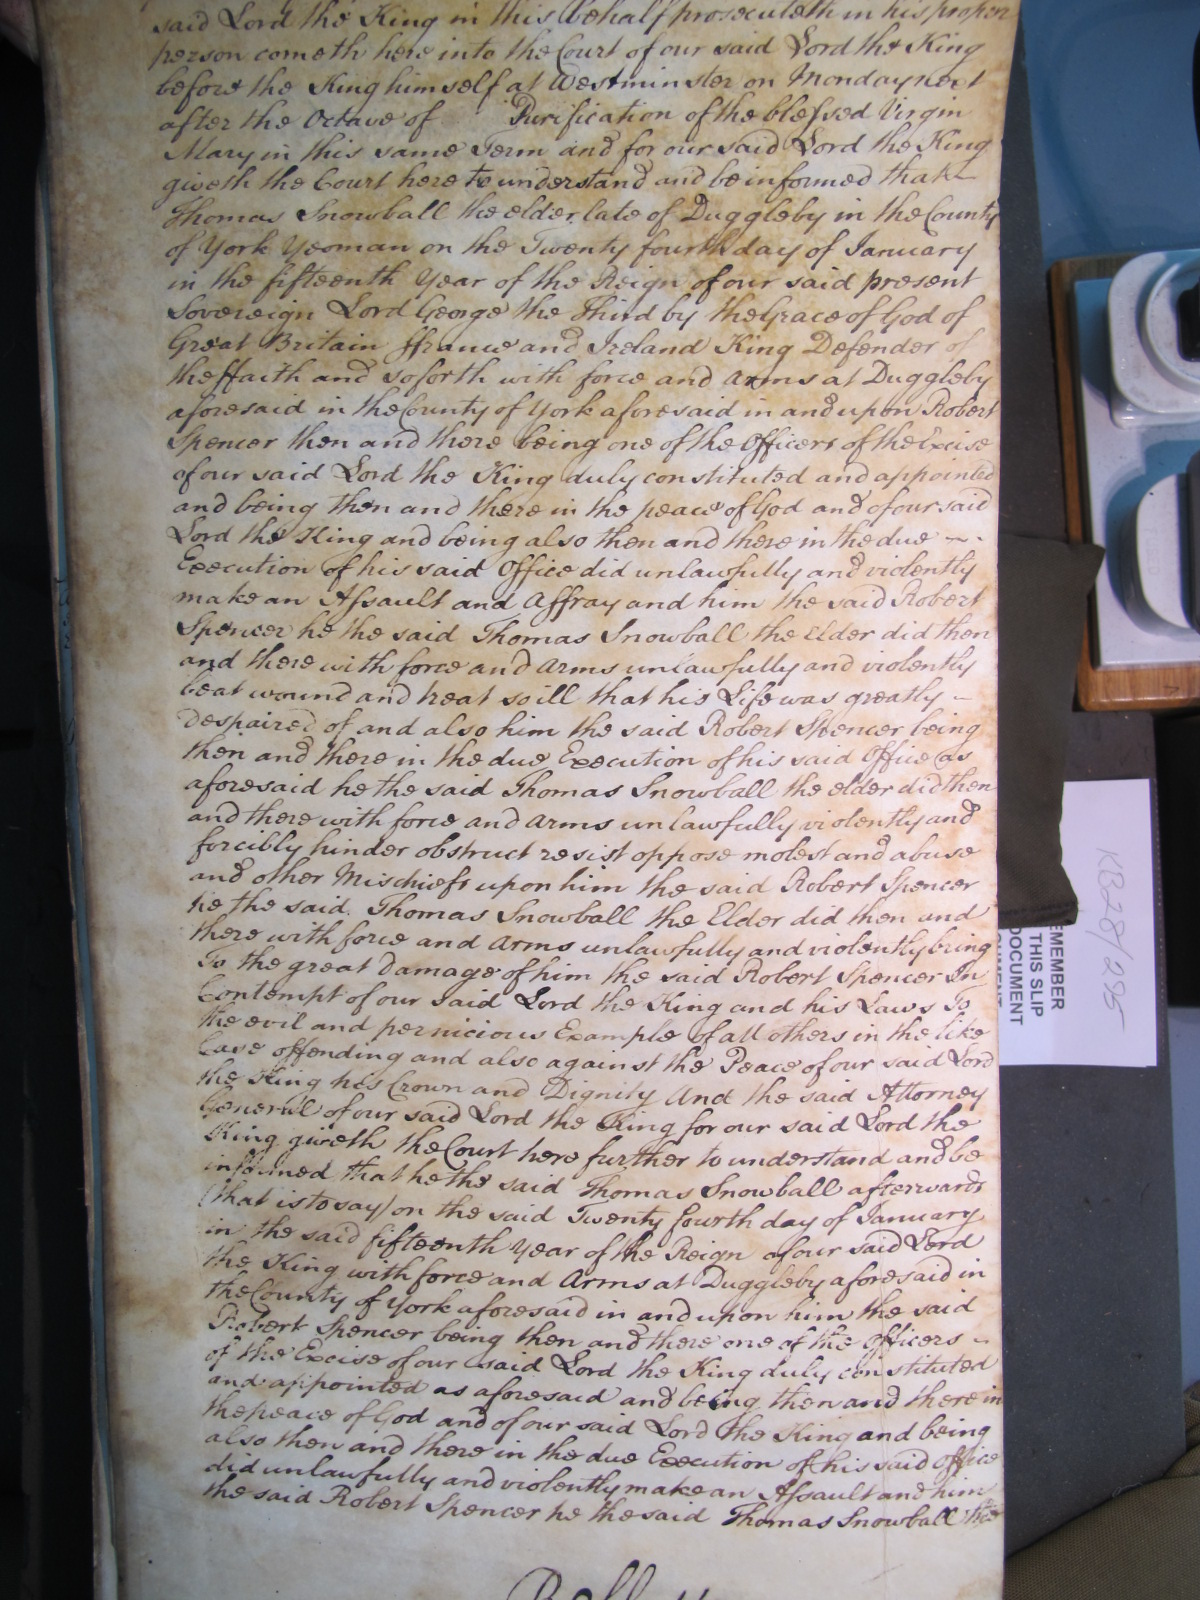 said Lord the King in this behalf prosecuteth in his proper
person cometh here into the Court of our said Lord the King
before the King himself at Westminster on Monday next
after the Octave of Purification of the blessed Virgin
Mary in this same Term and for our said Lord the King
giveth the Court here to understand and be informed that
Thomas Snowball the elder late of Duggleby in the County
of York Yeoman on the Twenty fourth day of January
in the fifteenth Year of the Reign of our said present
Sovereign Lord George the Third by the Grace of God of
Great Britain ffrance and Ireland King Defender of
the ffaith and so forth with force and arms at Duggleby
aforesaid in the County of York aforesaid in and upon Robert
Spencer then and there being one of the Officers of the Excise
of our said Lord the King duly constituted and appointed
and being then and there in the peace of God and of our said
Lord the King and being also then and there in the due
Execution of his said Office did unlawfully and violently
make an Assault and Affray and him the said Robert
Spencer he the said Thomas Snowball the Elder did then
and there with force and arms unlawfully and violently
beat wound and treat so ill that his Life was greatly
despaired of and also him the said Robert Spencer being
then and there in the due Execution of his said Office as
aforesaid he the said Thomas Snowball the elder did then
and there with force and arms unlawfully violently and
forcibly hinder obstruct resist oppose molest and abuse
and other Mischiefs upon him the said Robert Spencer
he the said Thomas Snowball the Elder did then and
there with force and arms unlawfully and violently bring
To the great Damage of him the said Robert Spencer In
Contempt of our said Lord the King and his Laws To
the evil and pernicious Example of all others in the like
Case offending and also against the Peace of our said Lord
the King his Crown and Dignity And the said Attorney
General of our said Lord the King for our said Lord the
King giveth the Court here further to understand and be
informed that he the said Thomas Snowball afterwards
(that is to say) on the said Twenty fourth day of January
in the said fifteenth Year of the Reign of our said Lord
the King with force and Arms at Duggleby aforesaid in
the County of York aforesaid in and upon him the said
Robert Spencer being then and there one of the Officers
of the Excise of our said Lord the King duly constituted
and appointed as aforesaid and being then and there in
the peace of God and of our said Lord the King and being
also then and there in the due Execution of his said office
did unlawfully and violently make an Assault and him
the said Robert Spencer he the said Thomas Snowball the
KB28/295
EMEMBER
THIS SLIP
DOCUMENT